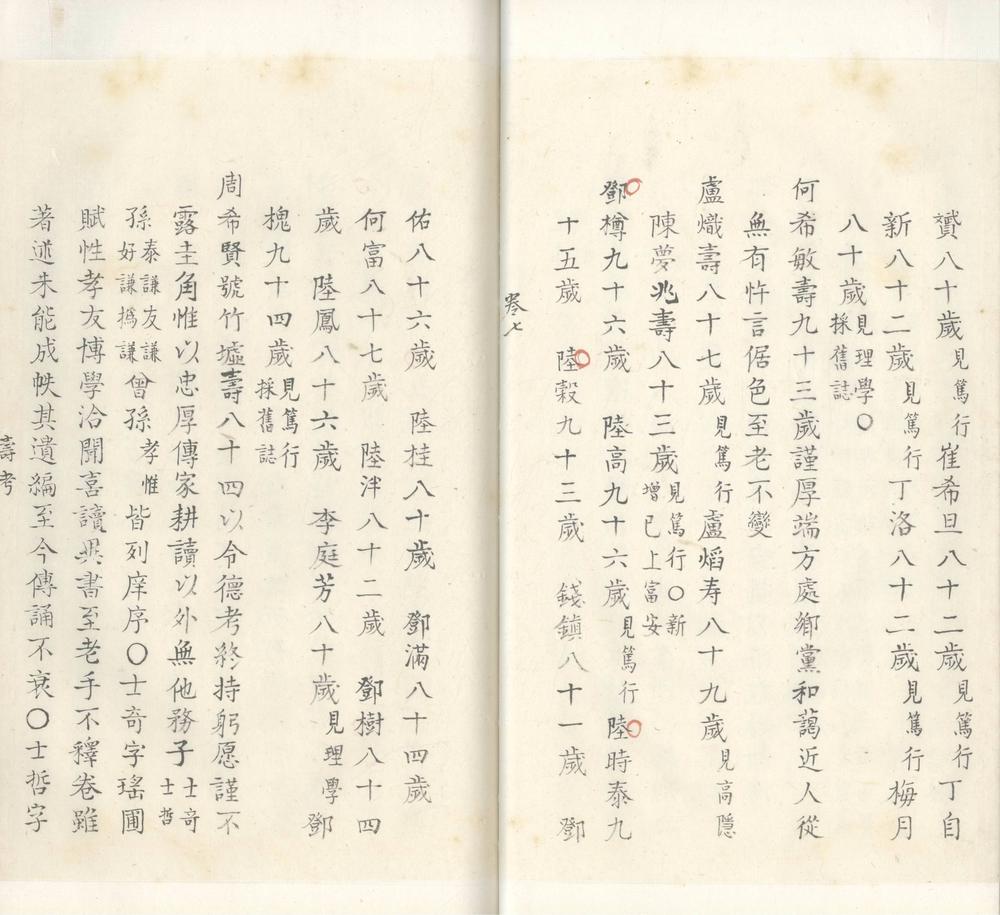 贇八十歲見篤行崔希旦八十二歲見篤行丁自
新八十二歲見篤行丁洛八十二歲見篤行梅月
八十歲見理學採舊誌〇
何希敏壽九十三歲謹厚端方處鄉黨和藹近人從
無有忤言倨色至老不變
盧熾壽八十七歲見篤行盧熖寿八十九歲見高隱
陳夢兆壽八十三歲見篤行〇新增已上富安
鄧樽九十六歲 陸高九十六歲見篤行陸時泰九
十五歲 陸穀九十三歲 錢鎮八十一歲 鄧
卷七
佑八十六歲 陸桂八十歲 鄧滿八十四歲
何富八十七歲 陸泮八十二歲 鄧樹八十四
歲 陸鳳八十六歲 李庭芳八十歲見理學鄧
槐九十四歲見篤行採舊誌
周希賢號竹墟壽八十四以令德考終持躬愿謹不
露圭角惟以忠厚傳家耕讀以外無他務子士奇士哲
孫泰謙友謙好謙撝謙曾孫孝惟皆列庠序〇士奇字瑤圃
賦性孝友博學洽聞喜讀異書至老手不釋卷雖
著述未能成帙其遺編至今傳誦不衰〇士哲字
壽考